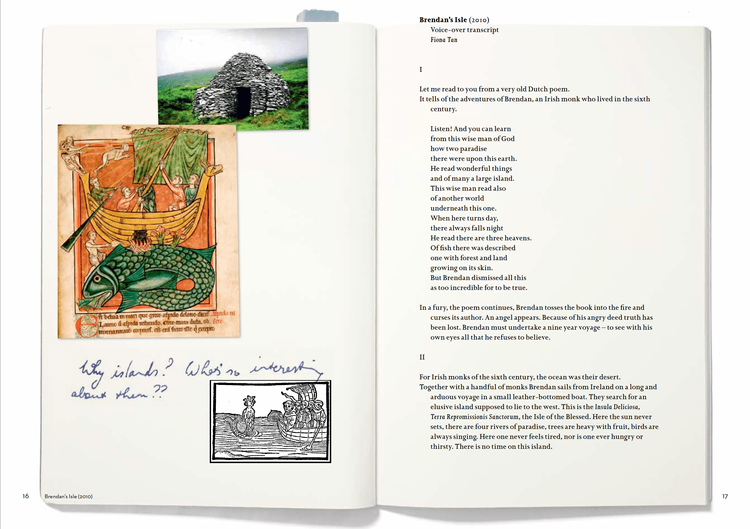 Why islands? What's so interesting
about them??
16
Brendan's Isle (2010)
Brendan's Isle (2010)
Voice-over transcript
Fiona Tan
I
Let me read to you from a very old Dutch poem.
It tells of the adventures of Brendan, an Irish monk who lived in the sixth
century.
Listen! And you can learn
from this wise man of God
how two paradise
there were upon this earth.
He read wonderful things
and of many a large island.
This wise man read also
of another world
underneath this one.
When here turns day,
there always falls night
He read there are three heavens.
Of fish there was described
one with forest and land
growing on its skin.
But Brendan dismissed all this
as too incredible for to be true.
In a fury, the poem continues, Brendan tosses the book into the fire and
curses its author. An angel appears. Because of his angry deed truth has
been lost. Brendan must undertake a nine year voyage – to see with his
own eyes all that he refuses to believe.
II
For Irish monks of the sixth century, the ocean was their desert.
Together with a handful of monks Brendan sails from Ireland on a long and
arduous voyage in a small leather-bottomed boat. They search for an
elusive island supposed to lie to the west. This is the Insula Deliciosa,
Terra Repromissionis Sanctorum, the Isle of the Blessed. Here the sun never
sets, there are four rivers of paradise, trees are heavy with fruit, birds are
always singing. Here one never feels tired, nor is one ever hungry or
thirsty. There is no time on this island.
17